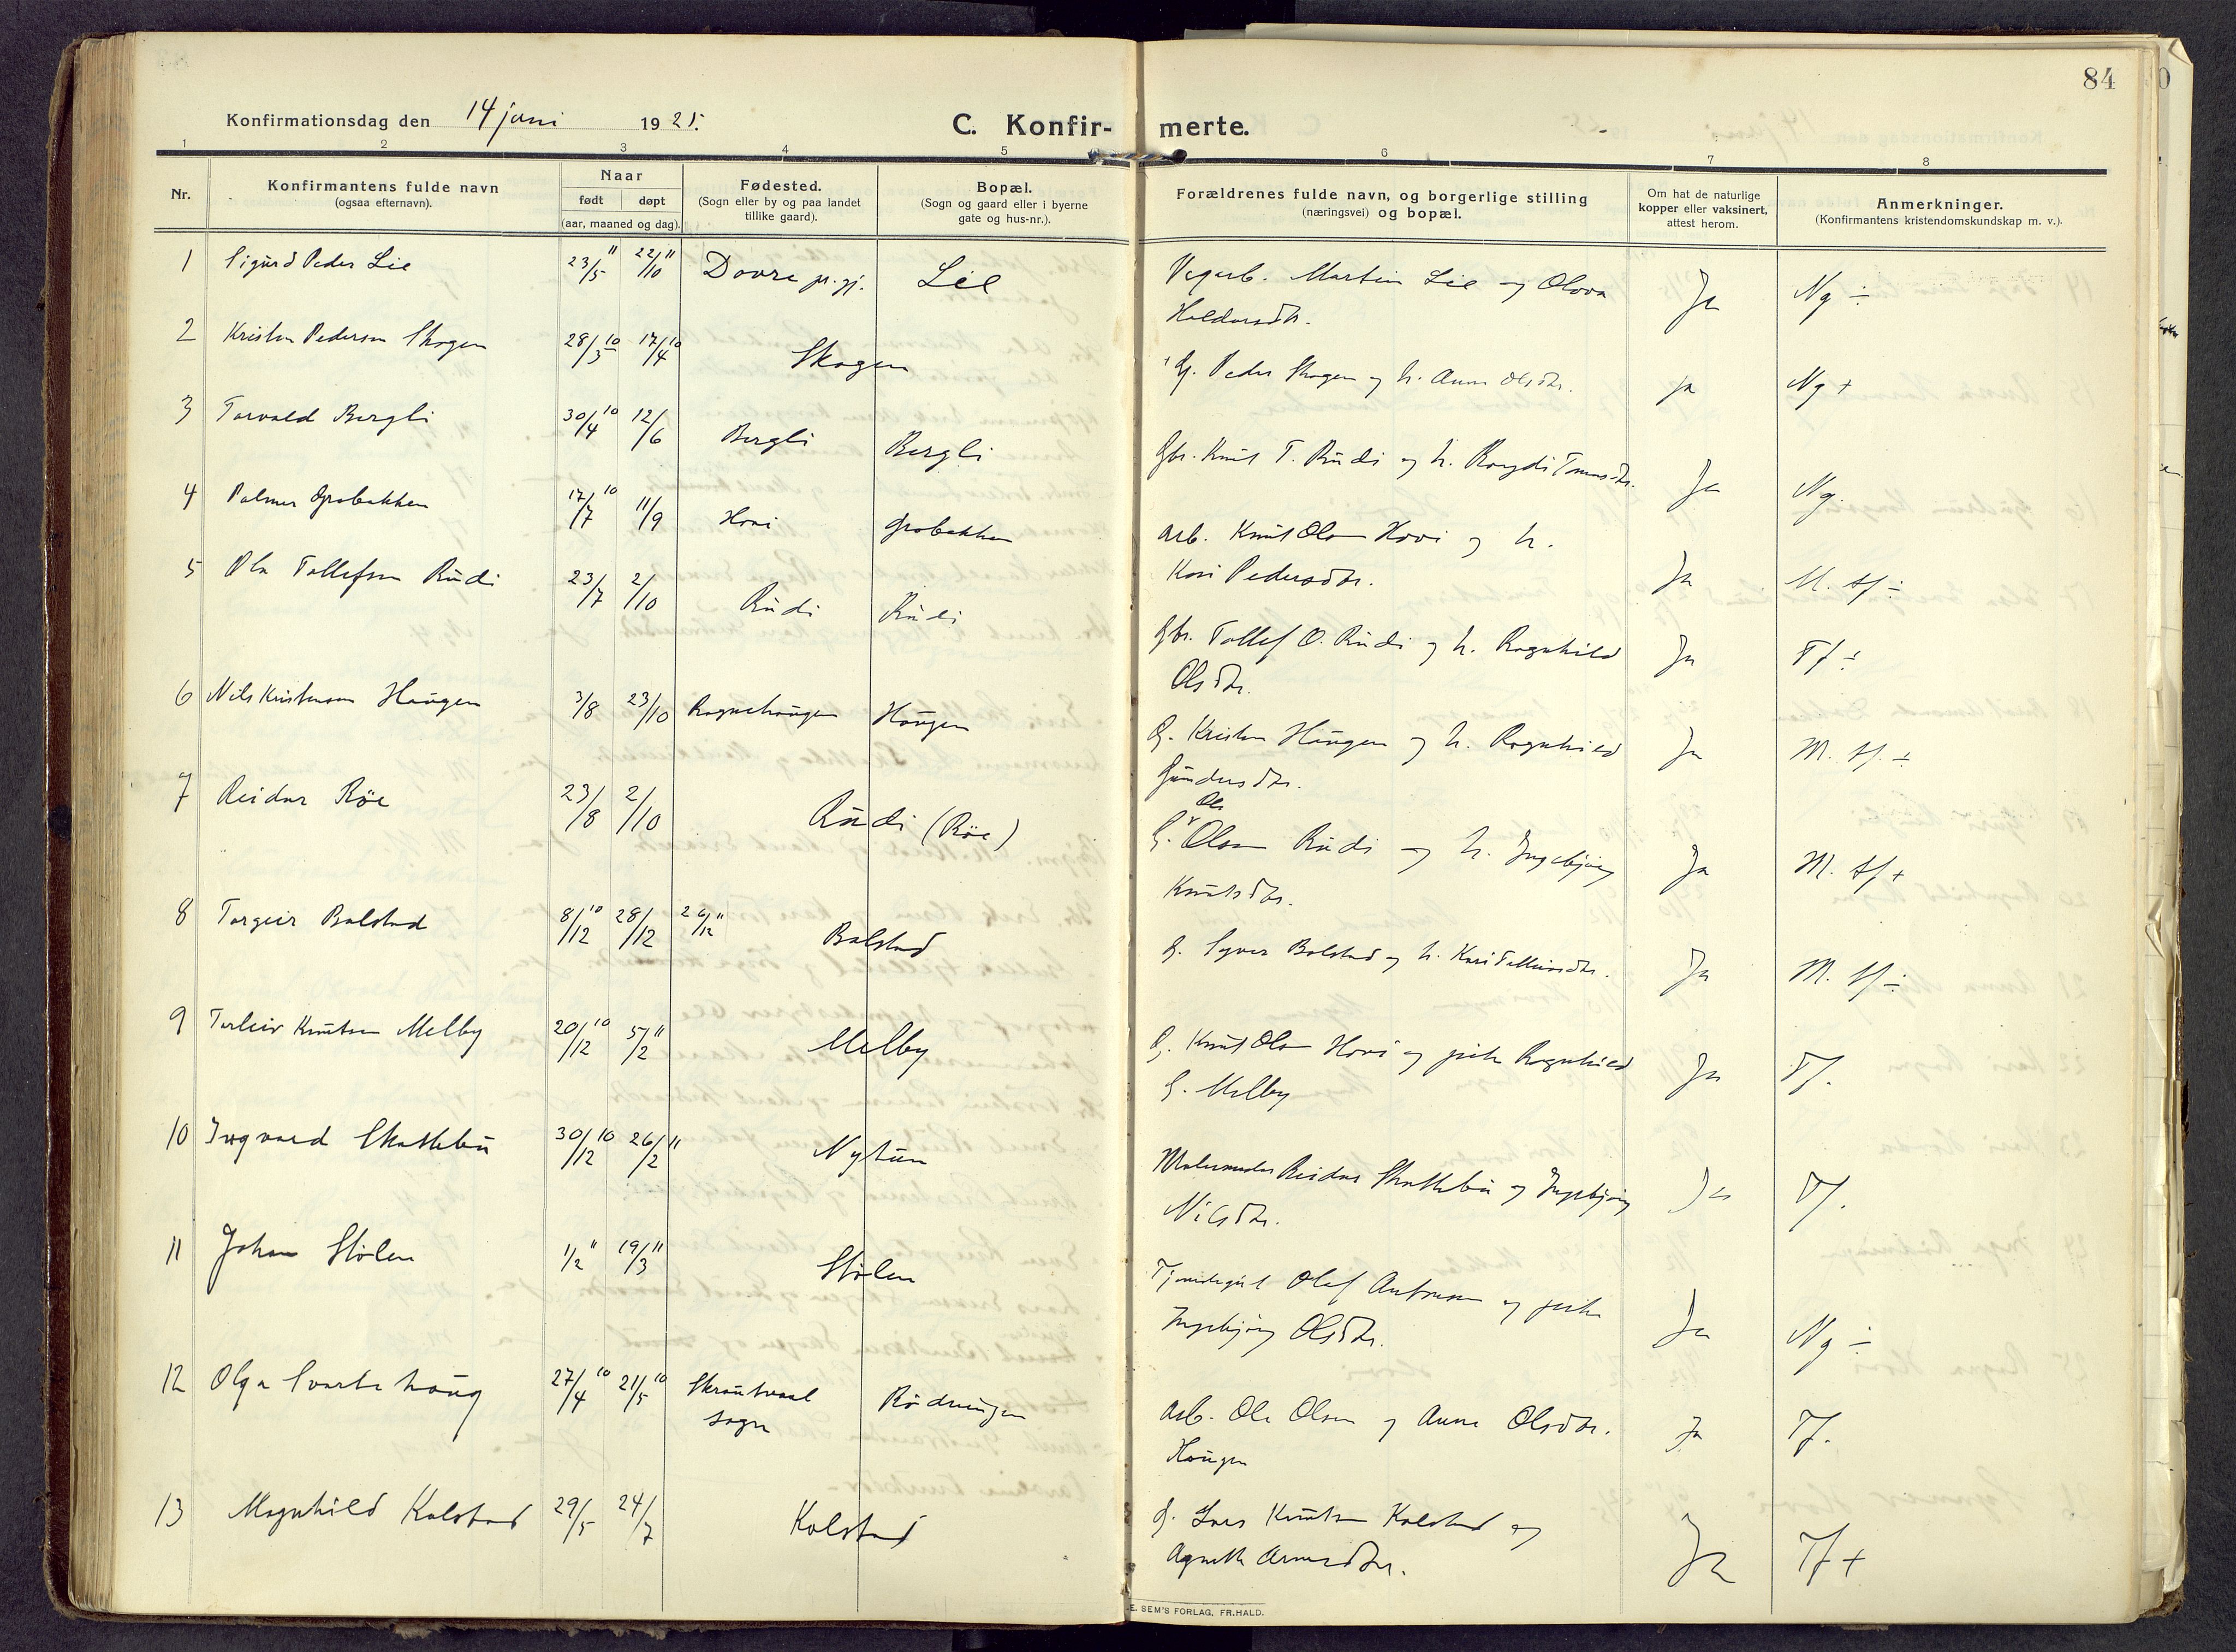 84
Konfirmationsdag den 14 juni 1925.
C. Konfir- merte.
1 2 3 4 5 6 7 8
Nr.
Konfirmantens fulde navn
(ogsaa efternavn).
Naar
født døpt
(aar, maaned og dag).
Fødested.
(Sogn eller by og paa landet
tillike gaard).
Bopæl.
(Sogn og gaard eller i byerne
gate og hus-nr.).
Forældrenes fulde navn, og borgerlige stilling
(næringsvei) og bopæl.
Om hat de naturlige
kopper eller vaksinert,
attest herom.
Anmerkninger.
(Konfirmantens kristendomskundskap m. v.).
1 Sigurd Peder Lie 23/5 11 22/10 11 Dovre pr.gj. Lie Vegarb. Martin Lie og Olova Ja Ng ÷
Haldorsdtr.
2 Kristen Pedersen Skogen 28/3 10 17/4 10 Skogen G. Peder Skogen og h. Anne Olsdtr. ja Ng +
3 Torvald Bergli 30/4 10 12/6 Bergli Bergli Gbr. Knut T. Rudi og h. Ja Ng.
4 Palmer Grobakken 17/7 10 11/9 Hovi Grobakken Arb. Knut Olsen Hovi og h. Ja M. tf ÷
Kari Pedersdtr.
5 Ola Tollefsen Rudi 23/7 2/10 Rudi Rudi Gbr. Tollef O. Rudi og h. Ragnhild Ja Tf ÷
Olsdtr.
6 Nils Kristensen Haugen 3/8 23/10 Rognehaugen Haugen G. Kristen Haugen og h. Ragnhild Ja M. tf. ÷
Gundersdtr.
7 Reidar Röe 23/8 2/10 Rudi (Röe) G. Ole Olsen Rudi og h. Ingebjørg Ja M. tf +
Knutsdtr.
8 Torgeir Bolstad 8/12 10 28/12 26/12 11 Bolstad G. Syver Bolstad og h. Kari Ja M. tf ÷
9 Torleiv Knutsen Melby 20/12 10 5/2 11 Melby G. Knut Olsen Hovi og pike Ragnhild Ja Tf.
G. Melby
10 Ingvard Skattebu 30/12 10 26/2 11 Nytun Malermester Reidar Skattebu og Ingebjørg Ja Tf.
Nilsdtr.
11 Johan Stölen 1/2 11 19/3 11 Stölen Tjenestegut Olaf Antonsen og pike Ja Ng ÷
Ingebjørg Olsdtr.
12 Olga Svartehaug 27/4 10 21/5 10 Skrautvaal Rödningen Arb. Ole Olsen og Anne Olsdtr. Ja Tf.
sogn Haugen
13 Magnhild Kolstad 29/5 24/7 Kolstad G. Lars Knutsen Kolstad og Ja Tf +
Agnethe Arnesdtr.
E. SEM'S FORLAG, FR.HALD.